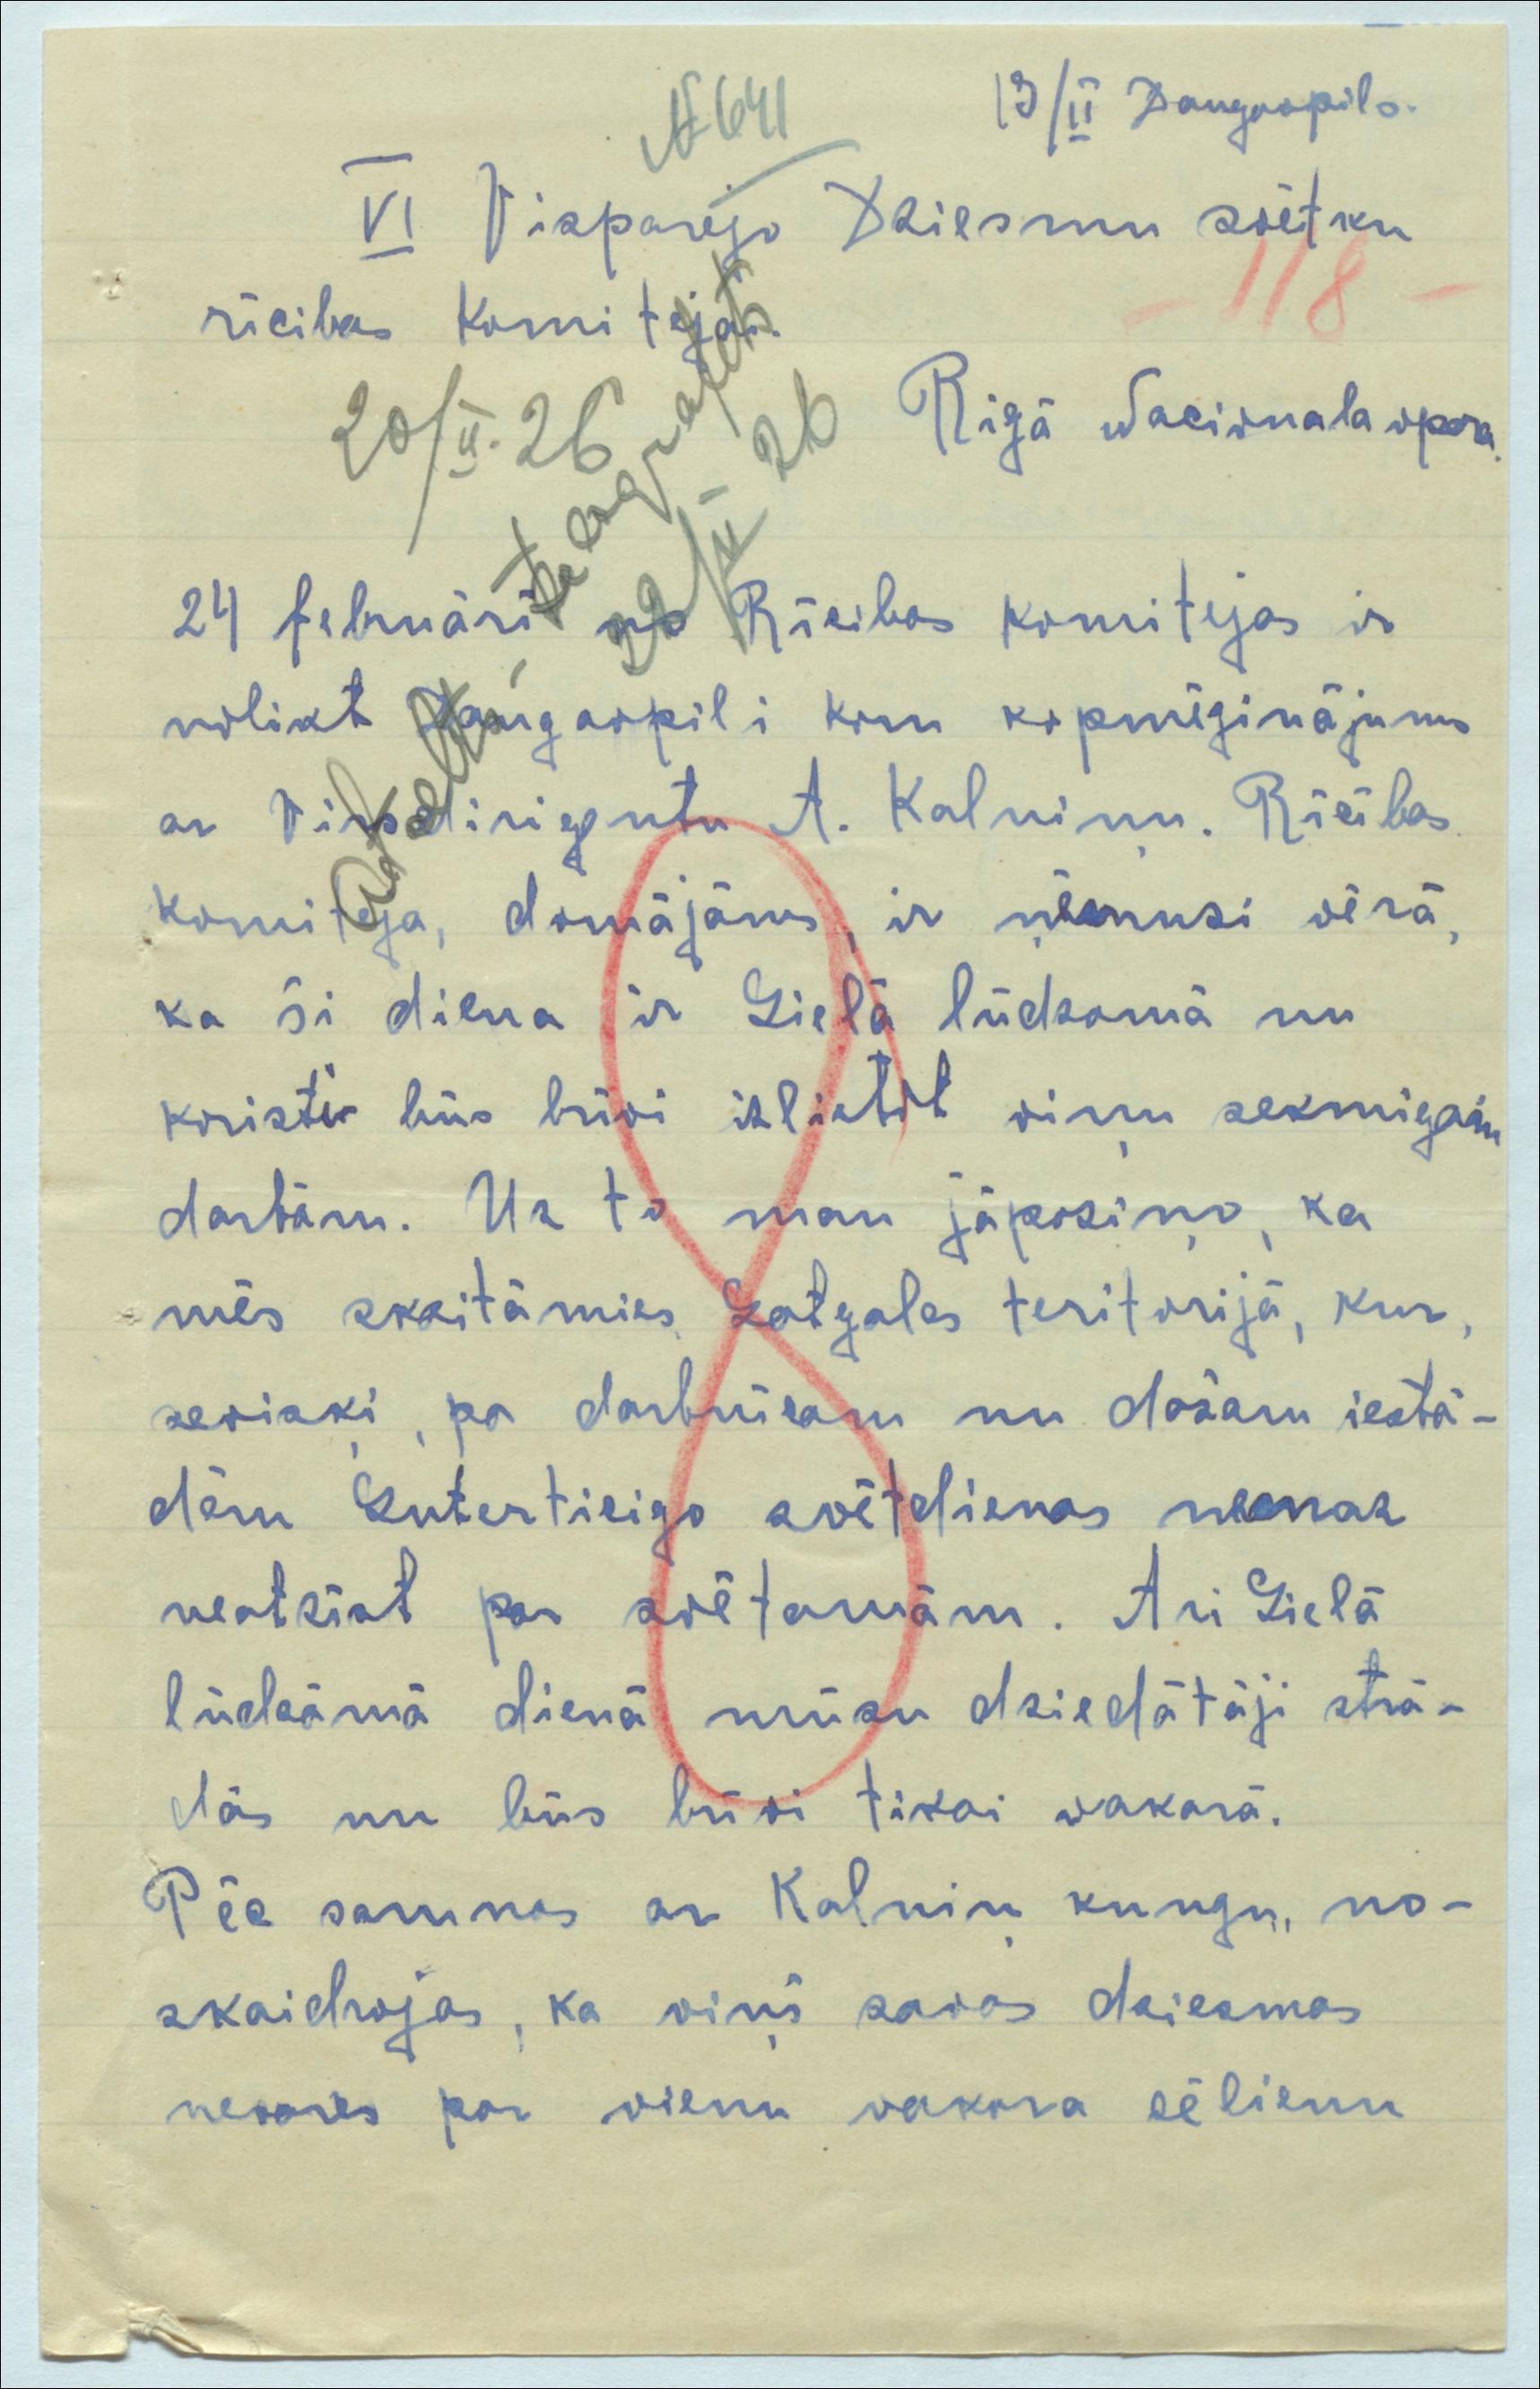 № 641
13/II Daugavpils.
VI Vispārējo Dziesmu svētku
- 118 -
rīcibas Komitejai.
20/II. 26
Rīgā Nacionala opera.
Atbildēts telegrafiski
22/II 26
24 februārī no Rīcibas komitejas ir
nolikt Daugavpili kora kopmēginājums
ar Virsdirigentu A. Kalniņu. Rīcības
komiteja, domājams, ir ņēmusi vērā,
ka ši diena ir Lielā lūdzamā un
koristi būs brīvi izlietot viņu sekmigam
darbam. Uz to man jāpaziņo, ka
mēs skaitāmies Latgales teritorijā, kur,
sevišķi, pa darbnīcam un dažam iestā-
dēm Luterticigo svētdienas nemaz
neatzīst par svētamām. Ari Lielā
lūdzāmā dienā mūsu dziedātāji strā-
dās un būs brīvi tikai vakarā.
Pēc sarunas ar Kalniņ kungu, no-
skaidrojas, ka viņš savas dziesmas
nevarēs par vienu vakara cēlienu